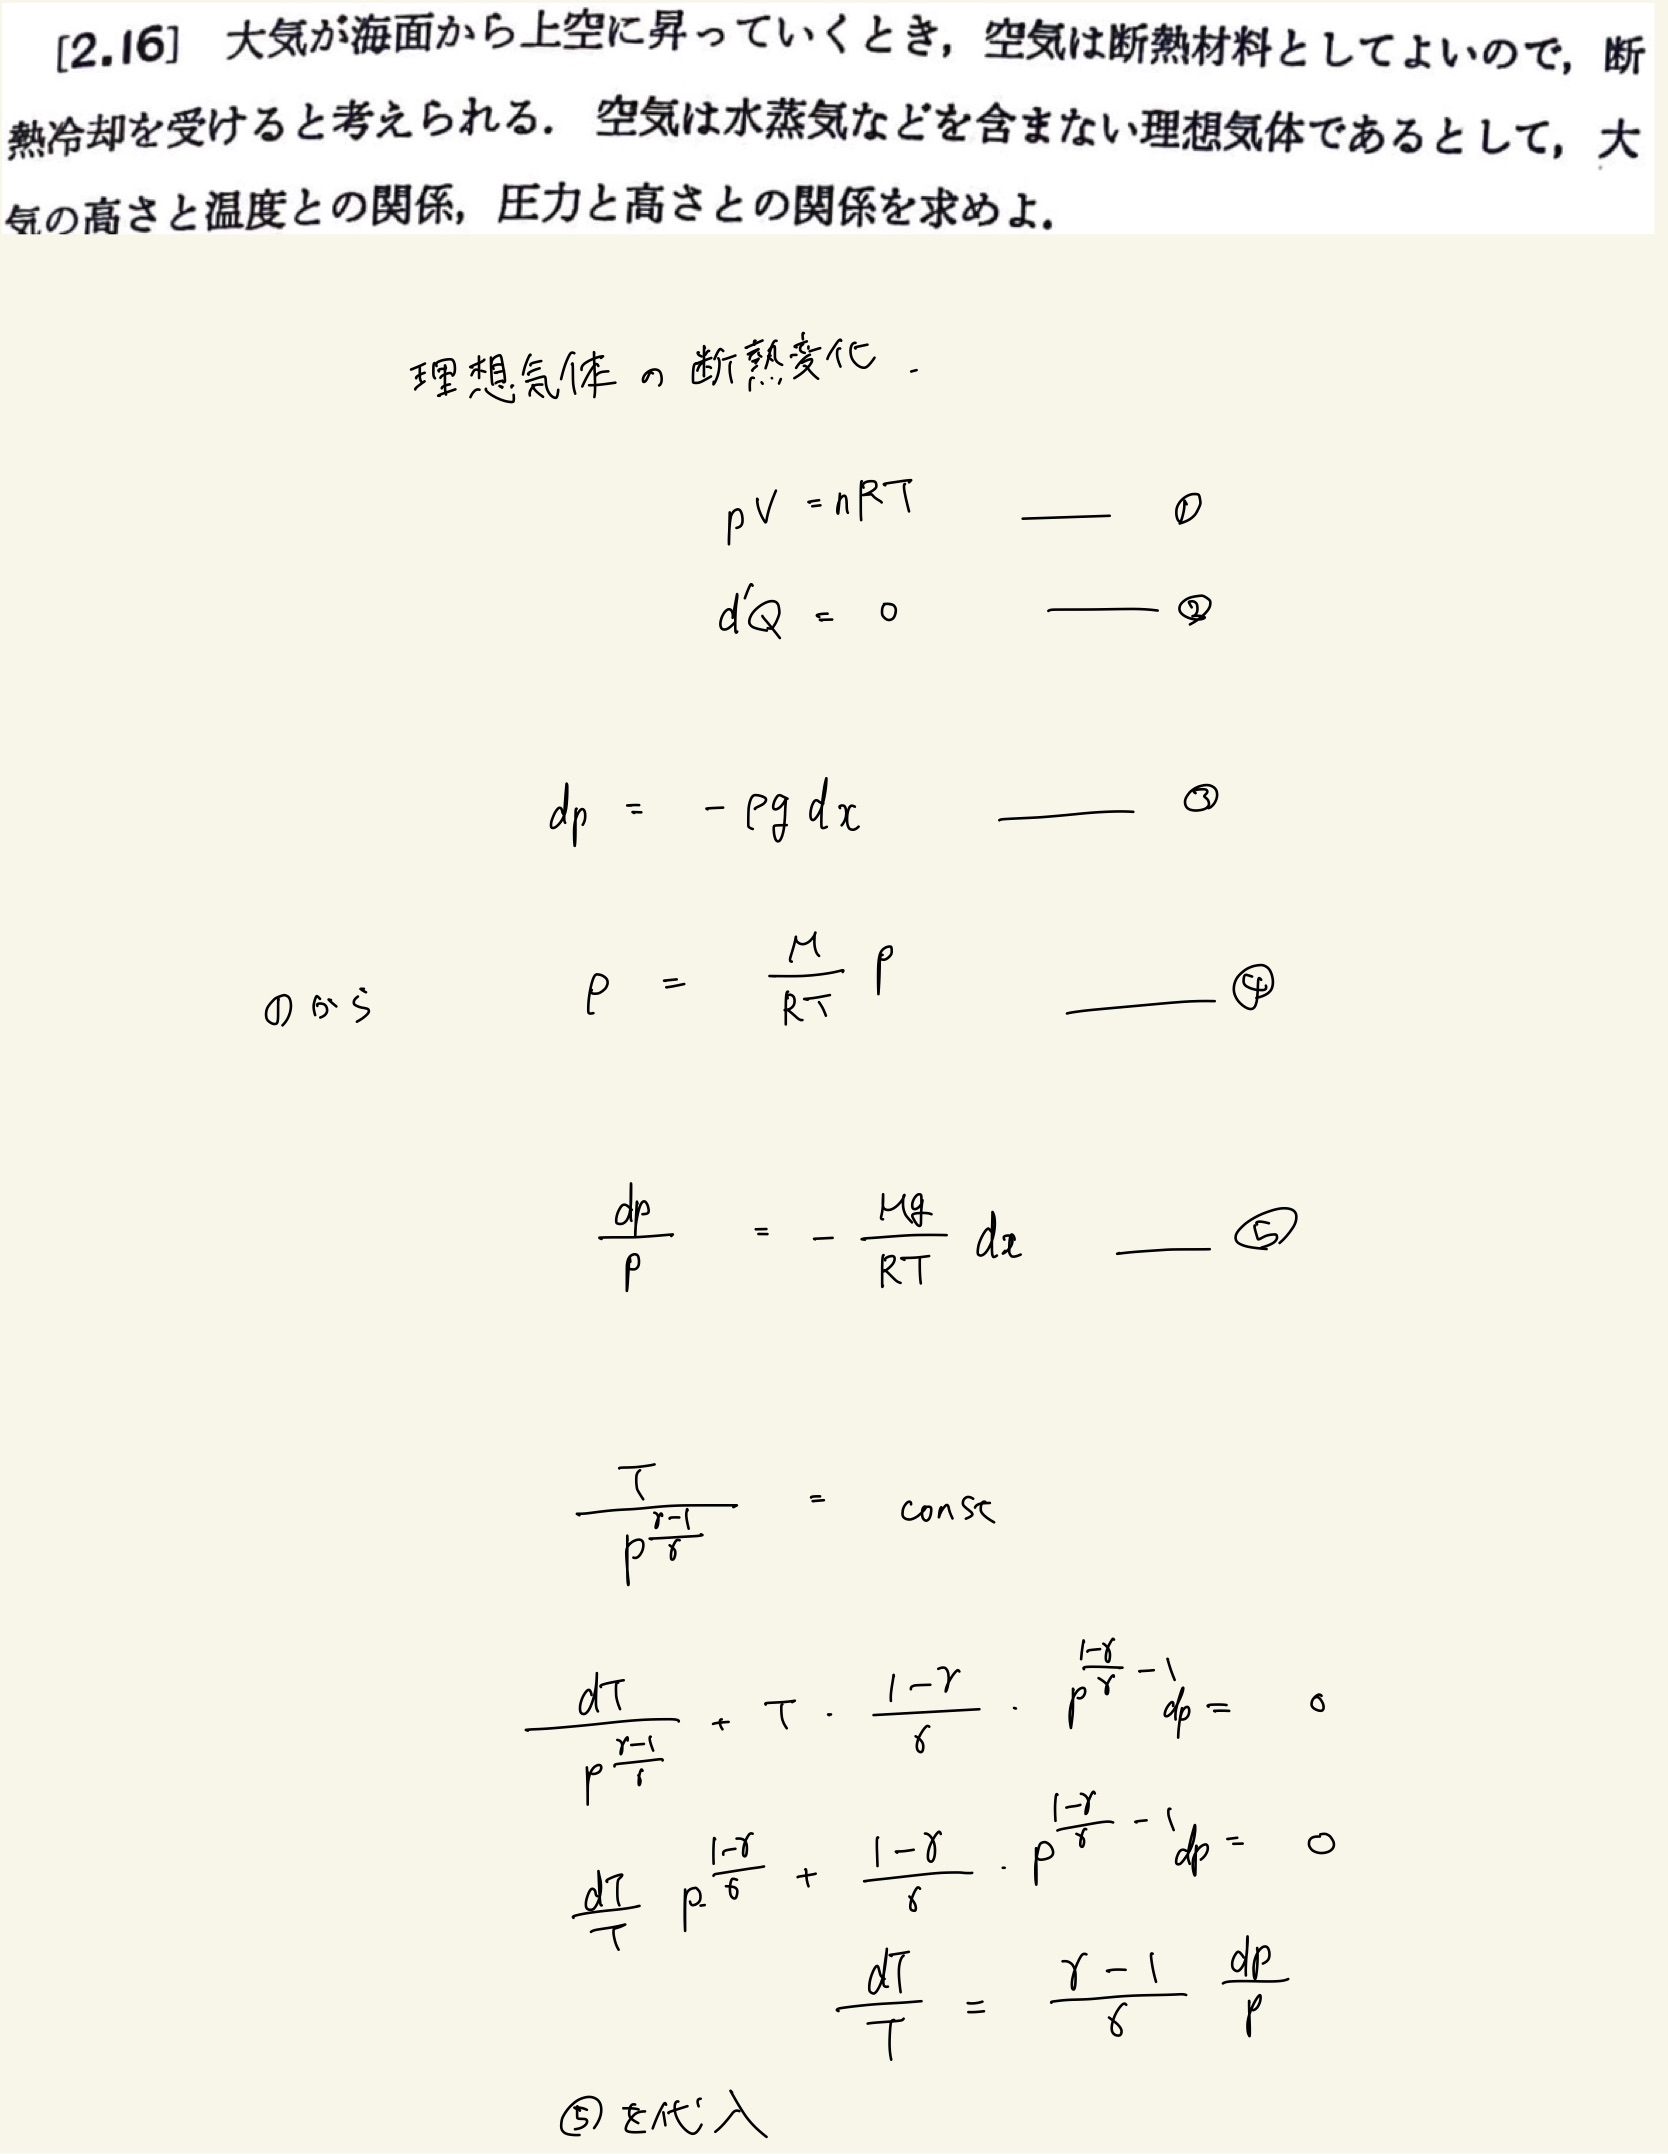 [2.16] 大気が海面から上空に昇っていくとき，空気は断熱材料としてよいので，断
熱冷却を受けると考えられる．空気は水蒸気などを含まない理想気体であるとして，大
気の高さと温度との関係，圧力と高さとの関係を求めよ．
理想気体の断熱変化.
pV = nRT —— ①
d'Q = 0 —— ②
dp = - ρg dx —— ③
①から ρ = M/RT p —— ④
dp/p = - Mg/RT dx —— ⑤
T/p^((γ-1)/γ) = const
dT/p^((γ-1)/γ) + T · (1-γ)/γ · p^((1-γ)/γ - 1) dp = 0
dT/T p^((1-γ)/γ) + (1-γ)/γ · p^((1-γ)/γ - 1) dp = 0
dT/T = (γ-1)/γ dp/p
⑤を代入